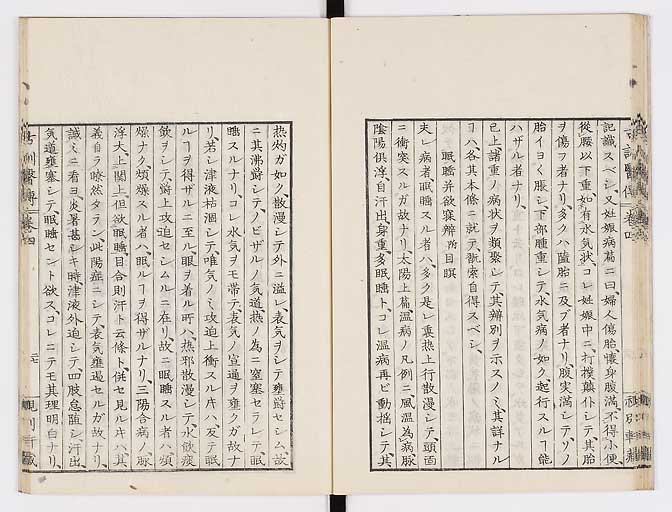 記識スベシ、又妊娠病篇ニ曰、婦人傷胎、懐身腹滿、不得小便、
從腰以下重、如有水気状、コレ妊娠中ニ、打撲顛仆シテ、其胎
ヲ傷フ者ナリ、多クハ墮胎ニ及ブ者ナリ、腹実滿シテ、ソノ
胎イヨく脹シ、下部腫重シテ、水気病ノ如ク、起行スルヿ能
ハザル者ナリ、
已上諸重ノ病状ヲ類聚シテ、其辨別ヲ示スノミ、其詳ナル
ヿハ、各其本條ニ就テ、翫索自得スベシ、
眠睡并欲寐辨 所目瞑
夫レ病者眠睡スル者ハ、多ク是レ裏熱上行散漫シテ、頭面
ニ衝突スルガ故ナリ、太陽上篇、温病ノ凡例ニ、風温為病、脈
陰陽俱浮、自汗出、身重、多眠睡ト、コレ温病再ビ動揺シテ、其
热灼ガ如ク、散漫シテ外ニ溢レ、表気ヲシテ壅欝セシム、故
ニ其沸欝シテ、ノビザルノ気道、热ノ為ニ窒塞セラレテ、眠
睡スルナリ、コレ水気ヲモ帯テ、表気ノ宣通ヲ壅クガ故ナ
リ、若シ津液枯涸シテ、唯気ノミ攻迫上衝スル片ハ、反テ眠
ルヿヲ得ザルニ至ル、眼ヲ着ル所ハ、热邪散漫シテ、水飲痰
飲ヲシテ、欝上攻迫セシムルニ在リ、故ニ眠睡スル者ハ、煩
燥ナク、煩燥スル者ハ、眠ルヿヲ得ザルナリ、三陽合病ノ、脈
浮大、上関上、但欲眠睡、目合則汗ト云條ト、併セ見ル片ハ、其
義自ラ瞭然タラン、此陽症ニシテ、表気壅遏セルガ故ナリ、
誠ミニ看ヨ、炎暑甚シキ時、津液外迫シテ、四肢怠惰シ、汗出
気道壅塞シテ、眠睡セント欲ス、コレニテモ其理明白ナリ、